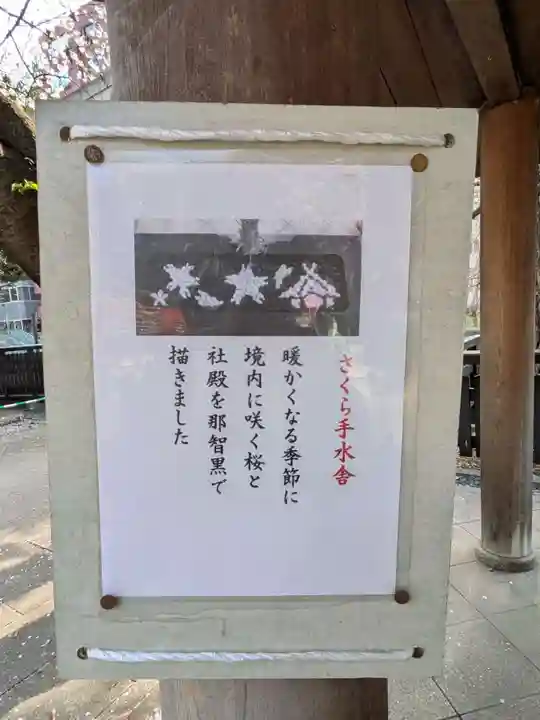 さくら手水舎
暖かくなる季節に
境内に咲く桜と
社殿を那智黒で
描きました